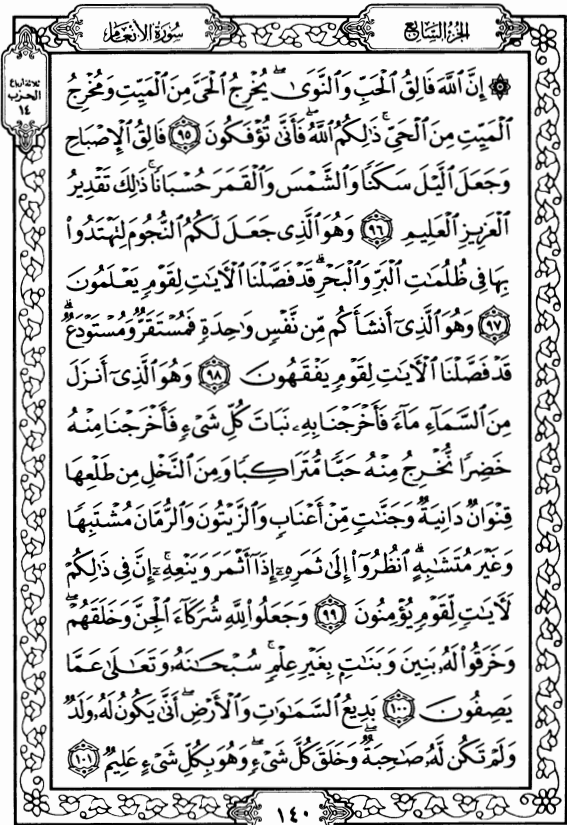 سُورَةُ الأَنْعَامِ
الجُزْءُ السَّابِعُ
ثلاثة أرباع
الحزب
١٤
۞ إِنَّ ٱللَّهَ فَالِقُ ٱلْحَبِّ وَٱلنَّوَىٰۖ يُخْرِجُ ٱلْحَىَّ مِنَ ٱلْمَيِّتِ وَمُخْرِجُ
ٱلْمَيِّتِ مِنَ ٱلْحَىِّۚ ذَٰلِكُمُ ٱللَّهُۖ فَأَنَّىٰ تُؤْفَكُونَ ٩٥ فَالِقُ ٱلْإِصْبَاحِ
وَجَعَلَ ٱلَّيْلَ سَكَنًا وَٱلشَّمْسَ وَٱلْقَمَرَ حُسْبَانًاۚ ذَٰلِكَ تَقْدِيرُ
ٱلْعَزِيزِ ٱلْعَلِيمِ ٩٦ وَهُوَ ٱلَّذِى جَعَلَ لَكُمُ ٱلنُّجُومَ لِتَهْتَدُوا۟
بِهَا فِى ظُلُمَٰتِ ٱلْبَرِّ وَٱلْبَحْرِۗ قَدْ فَصَّلْنَا ٱلْءَايَٰتِ لِقَوْمٍ يَعْلَمُونَ
٩٧ وَهُوَ ٱلَّذِىٓ أَنشَأَكُم مِّن نَّفْسٍ وَٰحِدَةٍ فَمُسْتَقَرٌّ وَمُسْتَوْدَعٌۗ
قَدْ فَصَّلْنَا ٱلْءَايَٰتِ لِقَوْمٍ يَفْقَهُونَ ٩٨ وَهُوَ ٱلَّذِىٓ أَنزَلَ
مِنَ ٱلسَّمَآءِ مَآءً فَأَخْرَجْنَا بِهِۦ نَبَاتَ كُلِّ شَىْءٍ فَأَخْرَجْنَا مِنْهُ
خَضِرًا نُّخْرِجُ مِنْهُ حَبًّا مُّتَرَاكِبًا وَمِنَ ٱلنَّخْلِ مِن طَلْعِهَا
قِنْوَانٌ دَانِيَةٌ وَجَنَّٰتٍ مِّنْ أَعْنَابٍ وَٱلزَّيْتُونَ وَٱلرُّمَّانَ مُشْتَبِهًا
وَغَيْرَ مُتَشَٰبِهٍۗ ٱنظُرُوٓا۟ إِلَىٰ ثَمَرِهِۦٓ إِذَآ أَثْمَرَ وَيَنْعِهِۦٓۚ إِنَّ فِى ذَٰلِكُمْ
لَءَايَٰتٍ لِّقَوْمٍ يُؤْمِنُونَ ٩٩ وَجَعَلُوا۟ لِلَّهِ شُرَكَآءَ ٱلْجِنَّ وَخَلَقَهُمْۖ
وَخَرَقُوا۟ لَهُۥ بَنِينَ وَبَنَٰتٍۭ بِغَيْرِ عِلْمٍۚ سُبْحَٰنَهُۥ وَتَعَٰلَىٰ عَمَّا
يَصِفُونَ ١٠٠ بَدِيعُ ٱلسَّمَٰوَٰتِ وَٱلْأَرْضِۖ أَنَّىٰ يَكُونُ لَهُۥ وَلَدٌ
وَلَمْ تَكُن لَّهُۥ صَٰحِبَةٌۖ وَخَلَقَ كُلَّ شَىْءٍۖ وَهُوَ بِكُلِّ شَىْءٍ عَلِيمٌ ١٠١
١٤٠